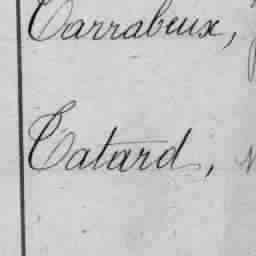 Carrabeux,
Catard,